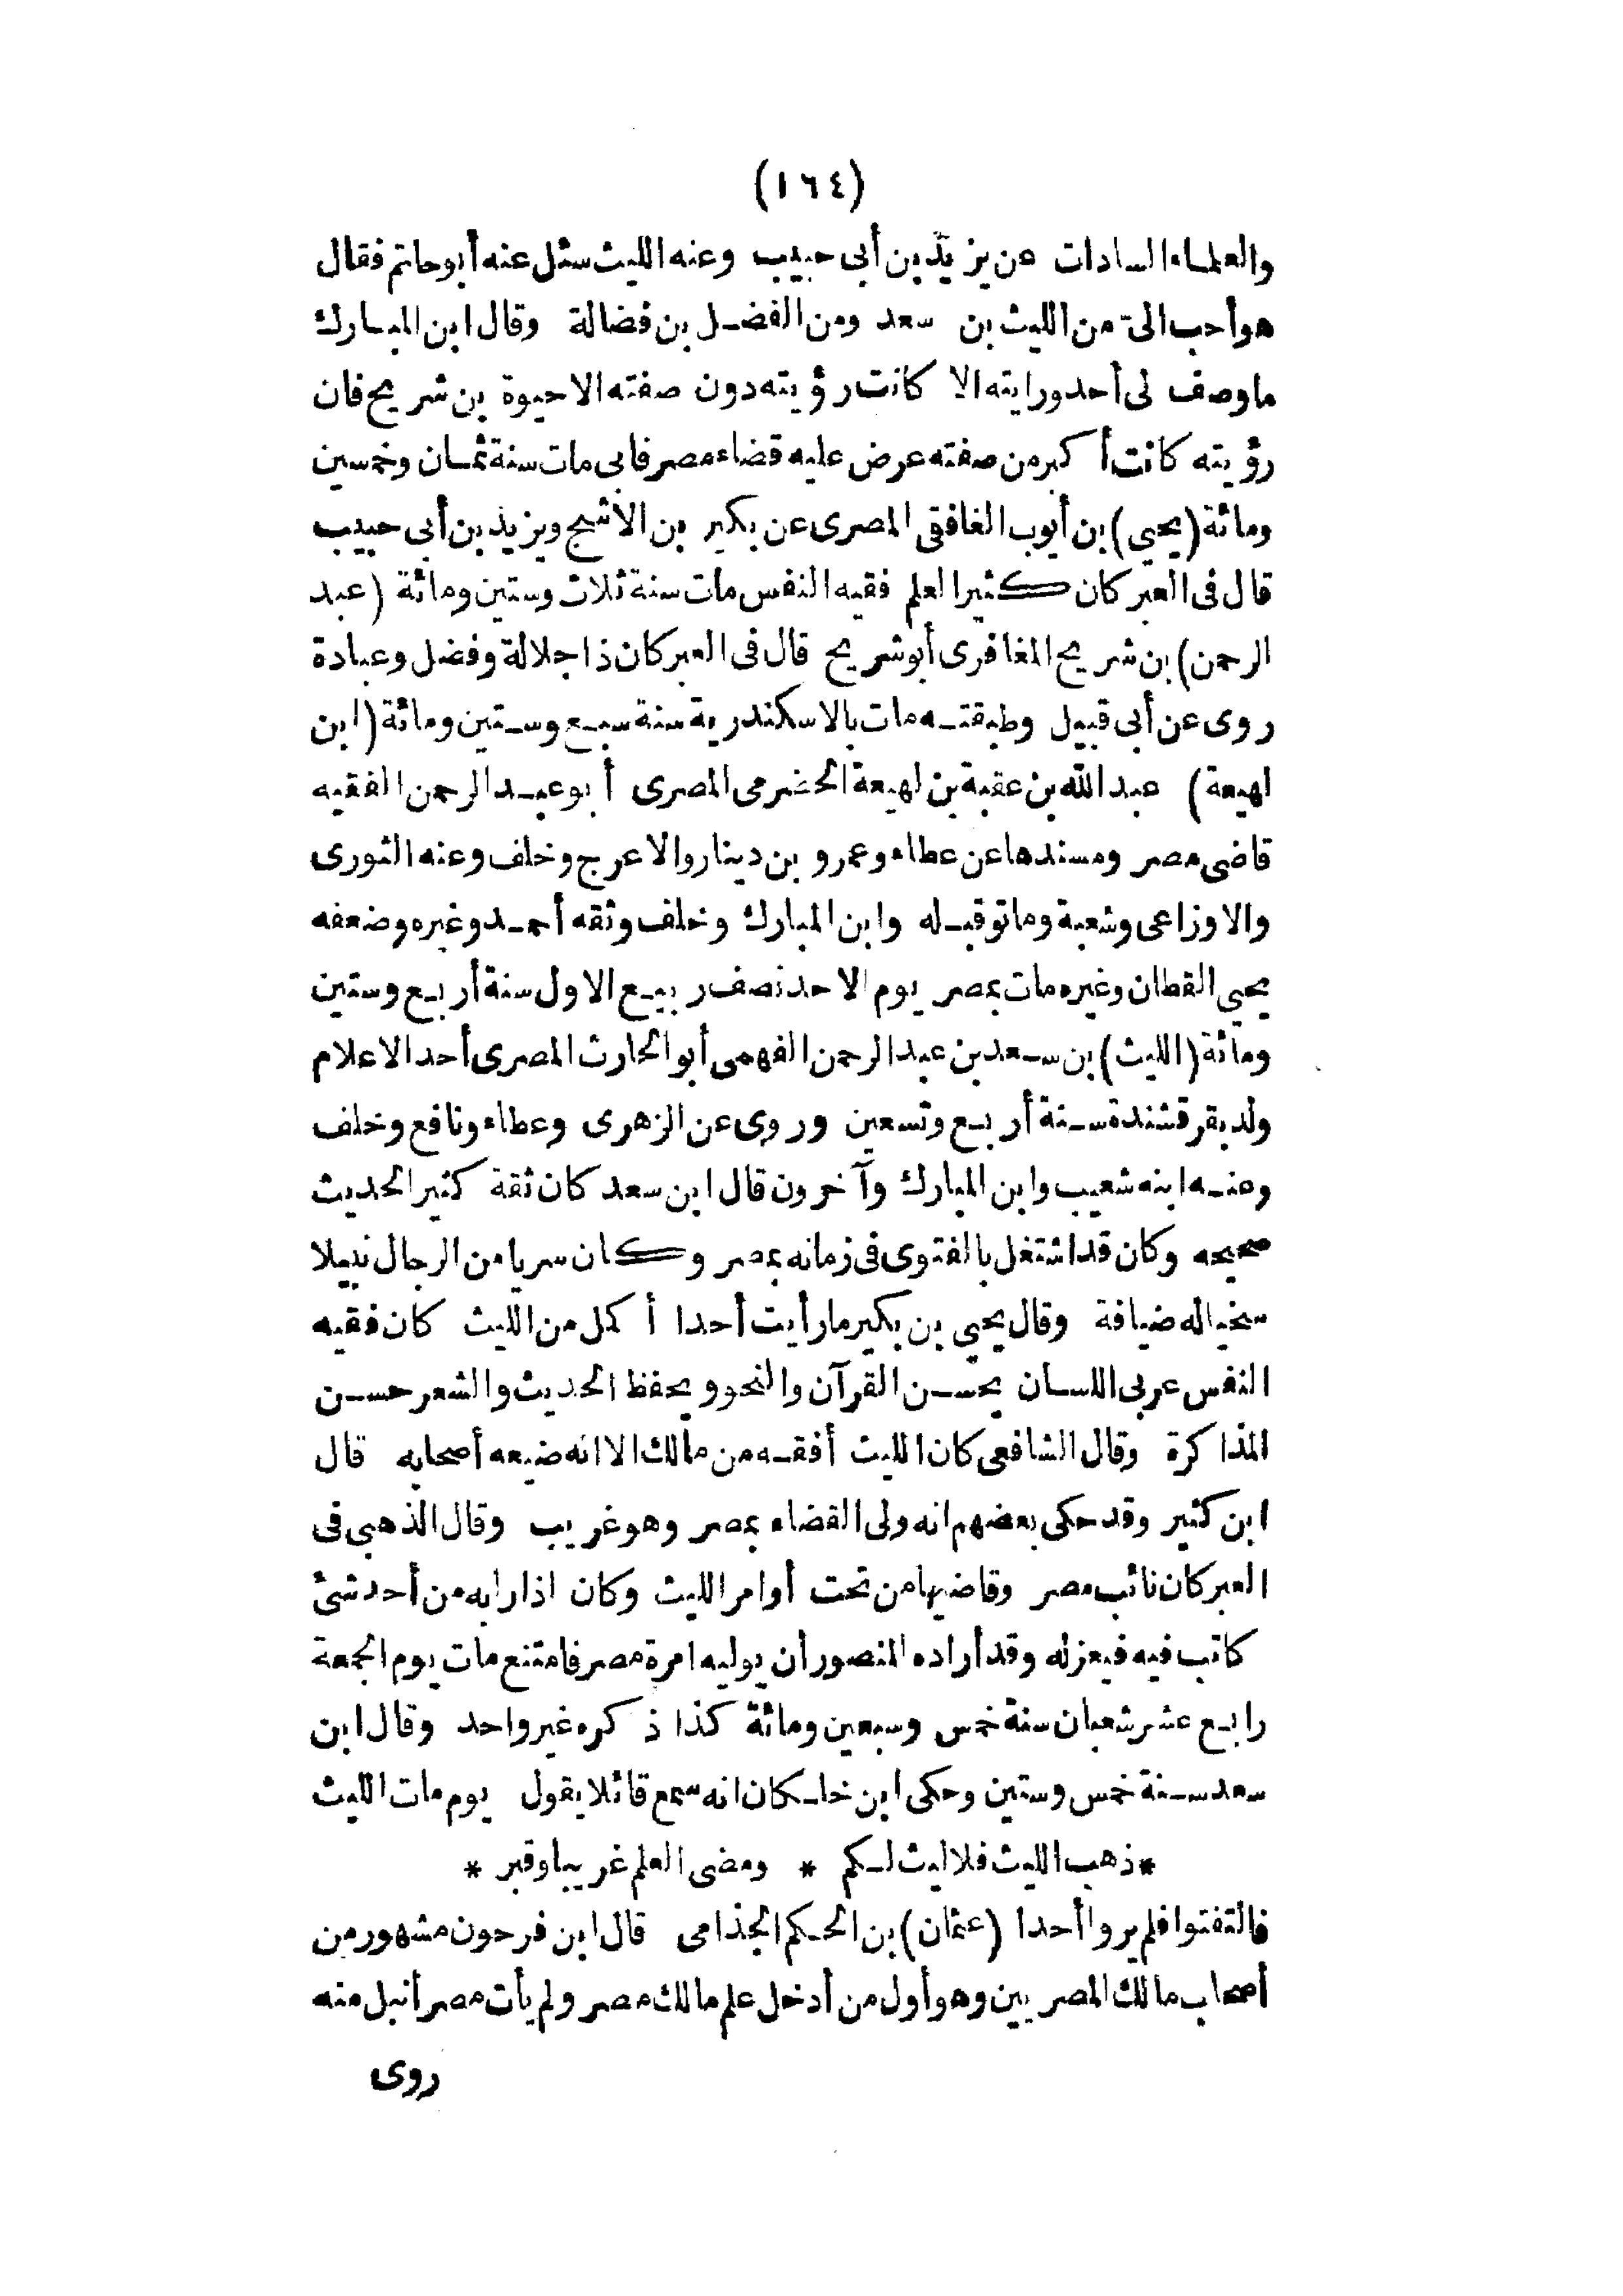 (١٦٤)
والعلماء السادات عن يزيد بن أبى حبيب وعنه الليث سئل عنه أبو حاتم فقال
هو أحب الىّ من الليث بن سعد ومن الفضل بن فضالة وقال ابن المبارك
ما وصف لى أحد ورايته الا كانت رؤيته دون صفته الا حيوة بن شريح فان
رؤيته كانت أكبر من صفته عرض عليه قضاء مصر فابى مات سنة ثمان وخمسين
ومائة (يحيى) بن أيوب الغافقى المصرى عن بكير بن الأشج ويزيد بن أبى حبيب
قال فى العبر كان كثير العلم فقيه النفس مات سنة ثلاث وستين ومائة (عبد
الرحمن) بن شريح المغافرى أبو شريح قال فى العبر كان ذا جلالة وفضل وعبادة
روى عن أبى قبيل وطبقته مات بالاسكندرية سنة سبع وستين ومائة (ابن
لهيعة) عبد الله بن عقبة بن لهيعة الحضرمى المصرى أبو عبد الرحمن الفقيه
قاضى مصر ومسندها عن عطاء وعمرو بن دينار والاعرج وخلف وعنه الثورى
والاوزاعى وشعبة وماتو قبله وابن المبارك وخلف وثقه أحمد وغيره وضعفه
يحيى القطان وغيره مات بمصر يوم الاحد نصف ربيع الاول سنة أربع وستين
ومائة (الليث) بن سعد بن عبد الرحمن الفهمى أبو الحارث المصرى أحد الاعلام
ولد بقرقشندة سنة أربع وتسعين وروى عن الزهرى وعطاء ونافع وخلف
وعنه ابنه شعيب وابن المبارك وآخرون قال ابن سعد كان ثقة كثير الحديث
صحيحه وكان قد اشتغل بالفتوى فى زمانه بمصر وكان سريا من الرجال نبيلا
سخيا له ضيافة وقال يحيى بن بكير ما رأيت أحدا أكمل من الليث كان فقيه
النفس عربى اللسان يحسن القرآن والنحو ويحفظ الحديث والشعر حسن
المذاكرة وقال الشافعى كان الليث أفقه من مالك الا انه ضيعه أصحابه قال
ابن كثير وقد حكى بعضهم انه ولى القضاء بمصر وهو غريب وقال الذهبى فى
العبر كان نائب مصر وقاضيها من تحت أوامر الليث وكان اذا رابه من أحد شئ
كاتب فيه فيعزله وقد أراده المنصور أن يوليه امرة مصر فامتنع مات يوم الجمعة
رابع عشر شعبان سنة خمس وسبعين ومائة كذا ذكره غير واحد وقال ابن
سعد سنة خمس وستين وحكى ابن خلكان انه سمع قائلا يقول يوم مات الليث
* ذهب الليث فلا ليث لكم * ومضى العلم غريبا وقبر *
فالتفتوا فلم يروا أحدا (عثمان) بن الحكم الجذامى قال ابن فرحون مشهور من
أصحاب مالك المصريين وهو أول من أدخل علم مالك مصر ولم يأت مصر أنبل منه
روى